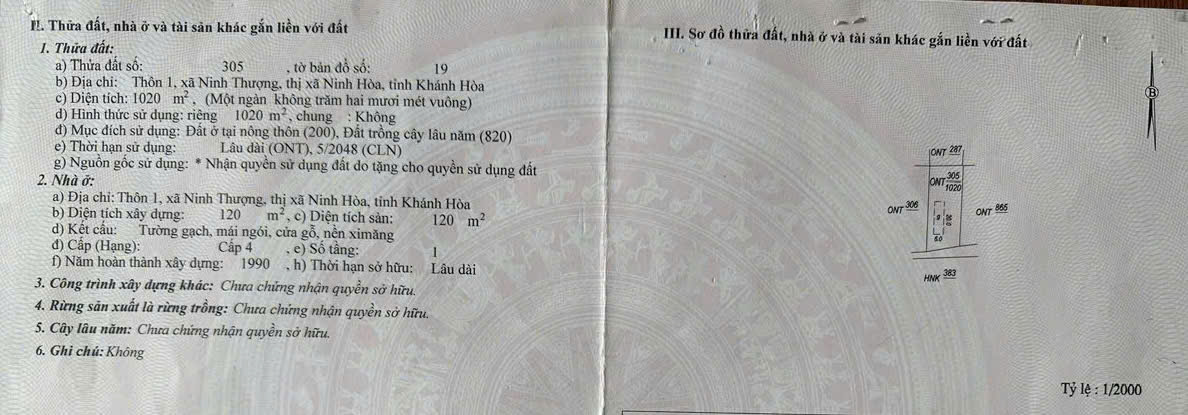 II. Thửa đất, nhà ở và tài sản khác gắn liền với đất
1. Thửa đất:
a) Thửa đất số: 305 , tờ bản đồ số: 19
b) Địa chỉ: Thôn 1, xã Ninh Thượng, thị xã Ninh Hòa, tỉnh Khánh Hòa
c) Diện tích: 1020 m², (Một ngàn không trăm hai mươi mét vuông)
d) Hình thức sử dụng: riêng 1020 m², chung : Không
đ) Mục đích sử dụng: Đất ở tại nông thôn (200), Đất trồng cây lâu năm (820)
e) Thời hạn sử dụng: Lâu dài (ONT), 5/2048 (CLN)
g) Nguồn gốc sử dụng: * Nhận quyền sử dụng đất do tặng cho quyền sử dụng đất
2. Nhà ở:
a) Địa chỉ: Thôn 1, xã Ninh Thượng, thị xã Ninh Hòa, tỉnh Khánh Hòa
b) Diện tích xây dựng: 120 m², c) Diện tích sàn: 120 m²
d) Kết cấu: Tường gạch, mái ngói, cửa gỗ, nền ximăng
đ) Cấp (Hạng): Cấp 4 , e) Số tầng: 1
f) Năm hoàn thành xây dựng: 1990 , h) Thời hạn sở hữu: Lâu dài
3. Công trình xây dựng khác: Chưa chứng nhận quyền sở hữu.
4. Rừng sản xuất là rừng trồng: Chưa chứng nhận quyền sở hữu.
5. Cây lâu năm: Chưa chứng nhận quyền sở hữu.
6. Ghi chú: Không
III. Sơ đồ thửa đất, nhà ở và tài sản khác gắn liền với đất
B
ONT 287
ONT 305
1020
ONT 306
ONT 865
6.0
HNK 383
Tỷ lệ : 1/2000